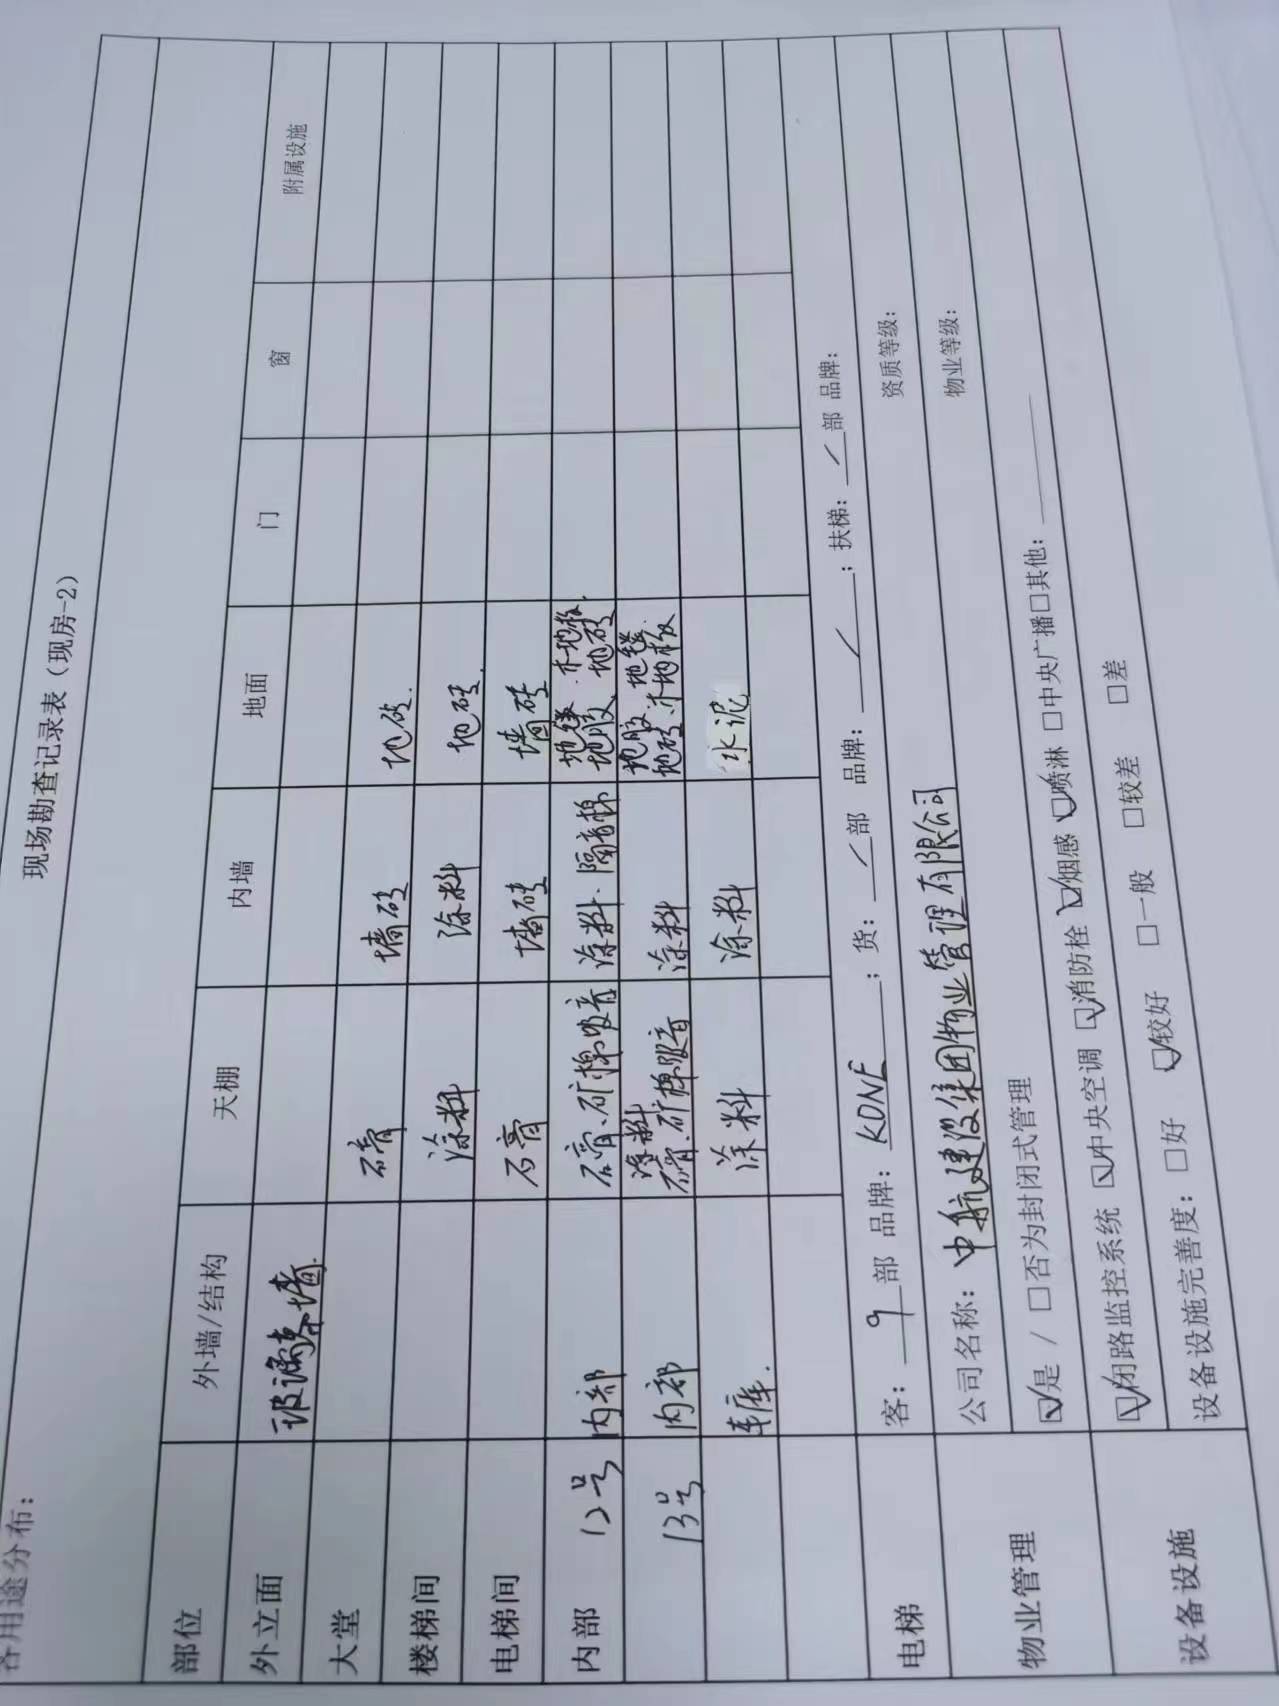 现场勘查记录表（现房-2）
各用途分布：
部位 外墙/结构 天棚 内墙 地面 门 窗 附属设施
外立面 玻璃幕墙
大堂 石膏 墙砖 地砖.
楼梯间 涂料 涂料 地砖.
电梯间 石膏 墙砖 墙砖
内部 12号 内部 石膏、矿棉吸音 涂料、隔音棉 地毯、木地板、
地胶、地砖
13号 内部 涂料 涂料 地胶、地毯、
石膏、矿棉吸音 地砖、木地板
车库. 涂料 涂料 水泥
电梯 客：9部 品牌：KONE；货：/部 品牌：/；扶梯：/部 品牌：
物业管理 公司名称：中航建设集团物业管理有限公司 资质等级：
☑是/□否为封闭式管理 物业等级：
设备设施 ☑闭路监控系统 ☑中央空调 ☑消防栓 ☑烟感 ☑喷淋 □中央广播□其他：
设备设施完善度：□好 ☑较好 □一般 □较差 □差